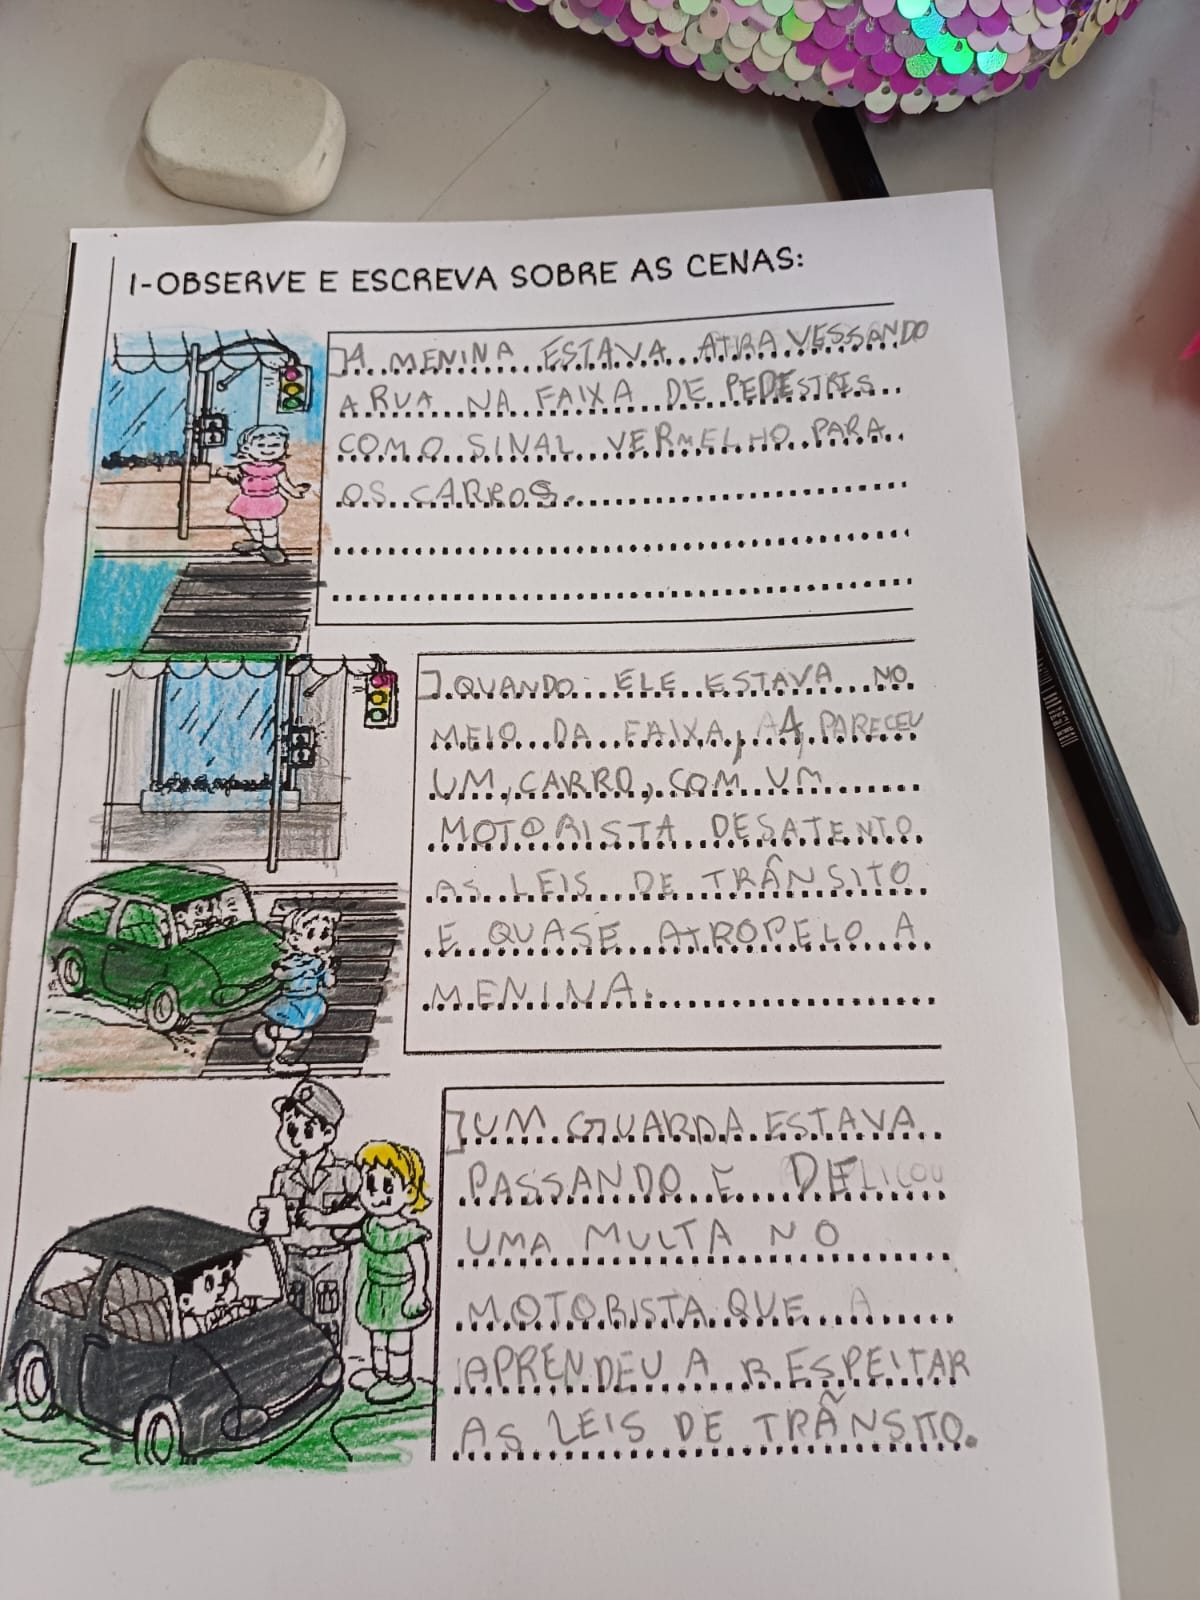 1-OBSERVE E ESCREVA SOBRE AS CENAS:
A MENINA ESTAVA ATRAVESSANDO
A RUA NA FAIXA DE PEDESTRES
COM O SINAL VERMELHO PARA
OS CARROS.
QUANDO ELE ESTAVA NO
MEIO DA FAIXA, APARECEU
UM, CARRO, COM UM
MOTORISTA DESATENTO
AS LEIS DE TRÂNSITO
E QUASE ATROPELO A
MENINA.
UM GUARDA ESTAVA
PASSANDO E
UMA MULTA NO
MOTORISTA QUE A
APRENDEU A RESPEITAR
AS LEIS DE TRÃNSITO.